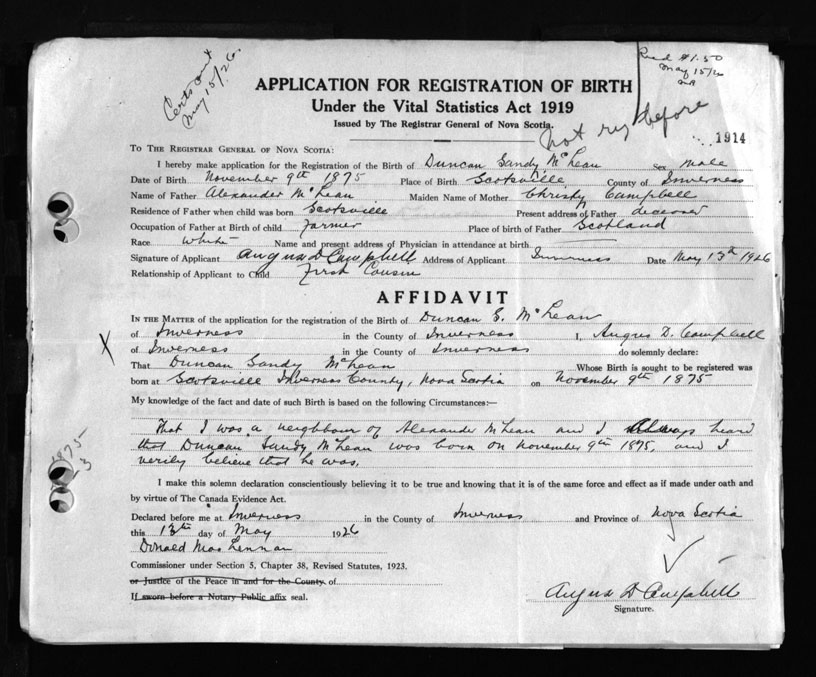 Certs out
May 15/26.
Recd $1.50
May 15/26
APPLICATION FOR REGISTRATION OF BIRTH
Under the Vital Statistics Act 1919
Issued by The Registrar General of Nova Scotia.
not reg before
1914
TO THE REGISTRAR GENERAL OF NOVA SCOTIA:
I hereby make application for the Registration of the Birth of Duncan Sandy McLean Sex male
Date of Birth November 9th 1875 Place of Birth Scotsville County of Inverness
Name of Father Alexander McLean Maiden Name of Mother Christy Campbell
Residence of Father when child was born Scotsville Present address of Father deceased
Occupation of Father at Birth of child farmer Place of birth of Father Scotland
Race White Name and present address of Physician in attendance at birth
Signature of Applicant Angus D Campbell Address of Applicant Inverness Date May 13th 1926
Relationship of Applicant to Child First Cousin
AFFIDAVIT
IN THE MATTER of the application for the registration of the Birth of Duncan S. McLean
of Inverness in the County of Inverness I, Angus D. Campbell
X of Inverness in the County of Inverness do solemnly declare:
That Duncan Sandy McLean Whose Birth is sought to be registered was
born at Scotsville Inverness County, Nova Scotia on November 9th 1875
My knowledge of the fact and date of such Birth is based on the following Circumstances:—
That I was a neighbour of Alexander McLean and I always heard
that Duncan Sandy McLean was born on November 9th 1875, and I
verily believe that he was.
1875
3
I make this solemn declaration conscientiously believing it to be true and knowing that it is of the same force and effect as if made under oath and
by virtue of The Canada Evidence Act.
Declared before me at Inverness in the County of Inverness and Province of Nova Scotia
this 13th day of May 1926
Donald MacLennan
Commissioner under Section 5, Chapter 38, Revised Statutes, 1923.
or Justice of the Peace in and for the County of
If sworn before a Notary Public affix seal.
Angus D Campbell
Signature.